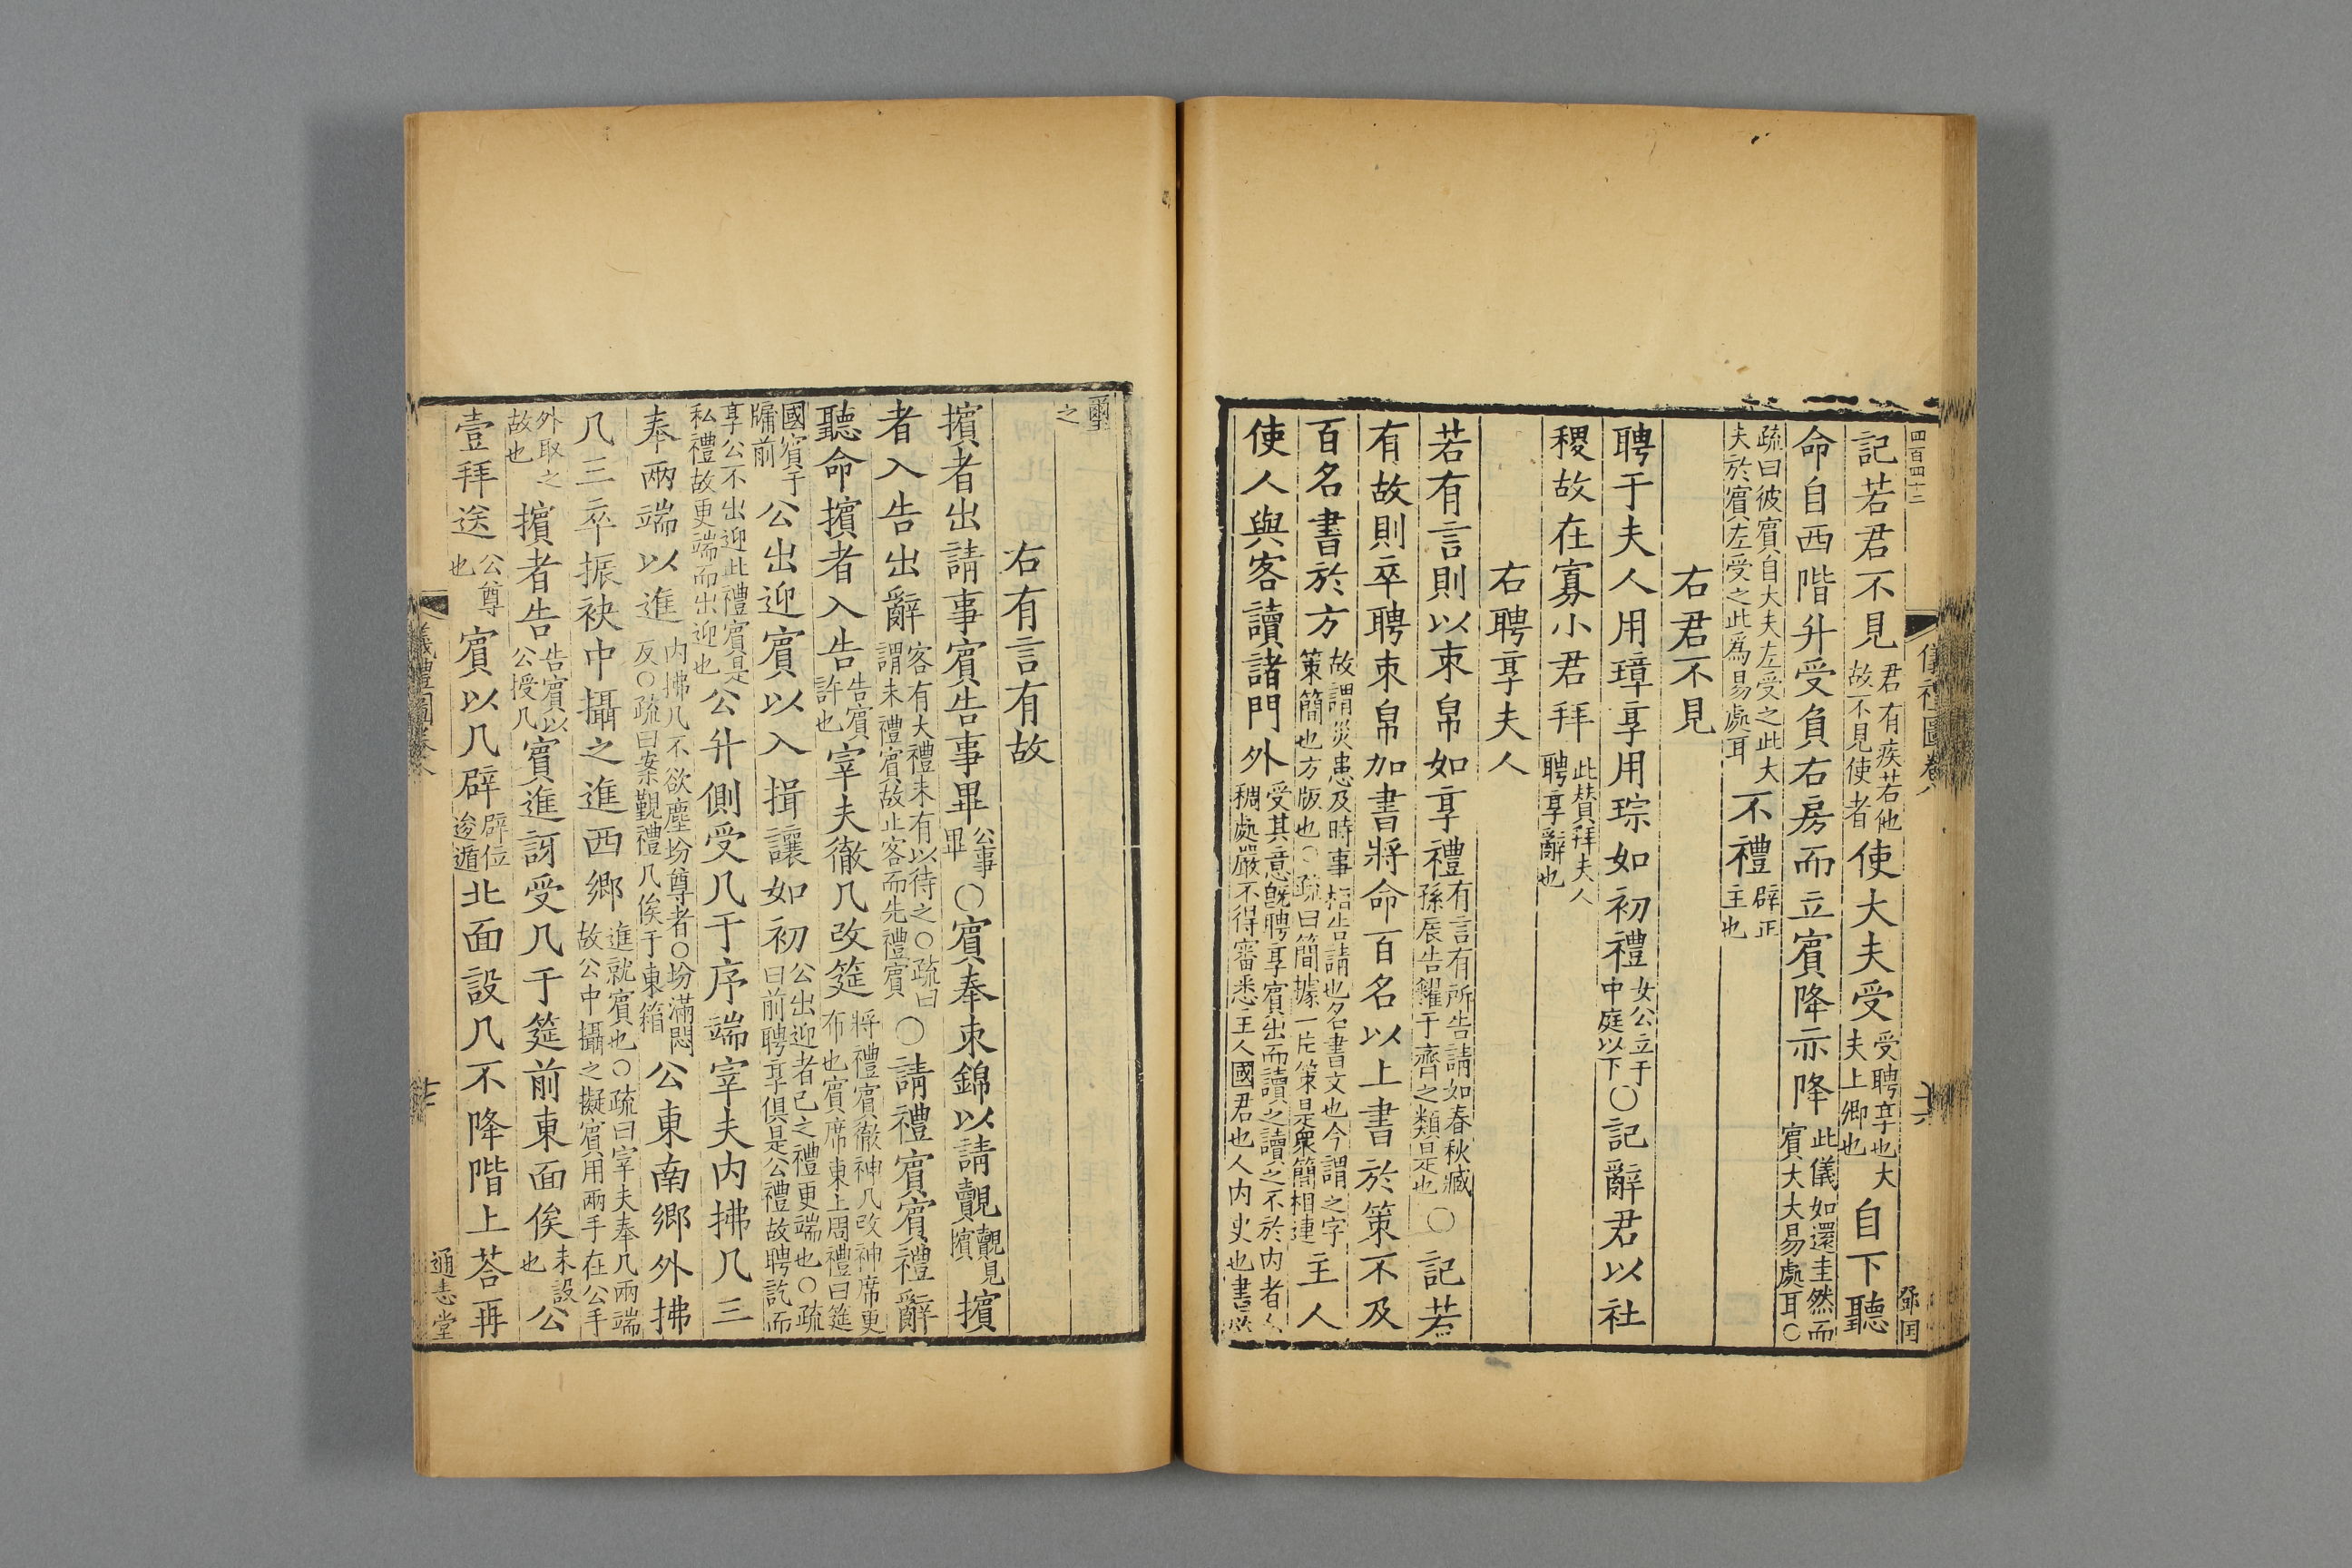 四百四十二
儀禮圖卷八
十六
記若君不見君有疾若他故不見使者使大夫受受聘享也大夫上卿也自下聽
命自西階升受負右房而立賓降亦降此儀如還圭然而賓大夫易處耳○
疏曰彼賓自大夫左受之此大夫於賓左受之此爲易處耳不禮辟正主也
右君不見
聘于夫人用璋享用琮如初禮女公立于中庭以下○記辭君以社
稷故在寡小君拜此贊拜夫人聘享辭也
右聘享夫人
若有言則以束帛如享禮有言有所告請如春秋臧孫辰告糴于齊之類是也○記若
有故則卒聘束帛加書將命百名以上書於策不及
百名書於方故謂災患及時事相告請也名書文也今謂之字策簡也方版也○疏曰簡據一片策是衆簡相連主人
使人與客讀諸門外受其意旣聘享賓出而讀之讀之不於內者人稠處嚴不得審悉主人國君也人內史也書必
璽之
右有言有故
擯者出請事賓告事畢公事畢○賓奉束錦以請覿覿見擯擯
者入告出辭客有大禮未有以待之○疏曰謂未禮賓故止客而先禮賓○請禮賓賓禮辭
聽命擯者入告告賓許也宰夫徹几改筵將禮賓徹神几改神席更布也賓席東上周禮曰筵
國賓于牖前公出迎賓以入揖讓如初公出迎者己之禮更端也○疏曰前聘享俱是公禮故聘訖而
享公不出迎此禮賓是私禮故更端而出迎也公升側受几于序端宰夫內拂几三
奉兩端以進內拂几不欲塵坋尊者○坋滿悶反○疏曰案覲禮几俟于東箱公東南鄉外拂
几三卒振袂中攝之進西鄉進就賓也○疏曰宰夫奉几兩端故公中攝之擬賓用兩手在公手
外取之故也擯者告告賓以公授几賓進訝受几于筵前東面俟未設也公
壹拜送公尊也賓以几辟辟位逡遁北面設几不降階上荅再
儀禮圖卷八
十七
通志堂